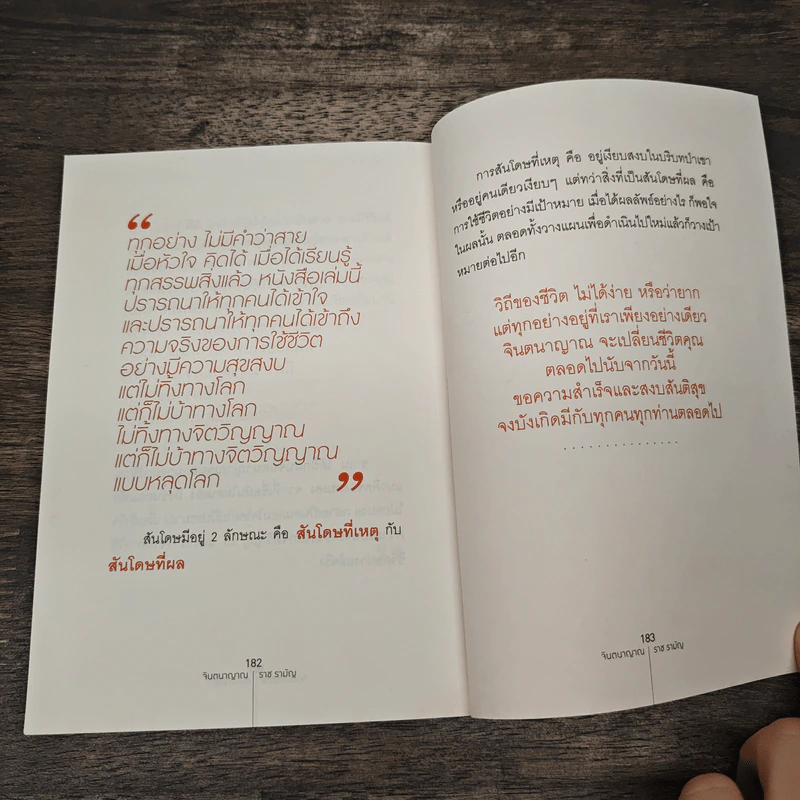 “
ทุกอย่าง ไม่มีคำว่าสาย
เมื่อหัวใจ คิดได้ เมื่อได้เรียนรู้
ทุกสรรพสิ่งแล้ว หนังสือเล่มนี้
ปรารถนาให้ทุกคนได้เข้าใจ
และปรารถนาให้ทุกคนได้เข้าถึง
ความจริงของการใช้ชีวิต
อย่างมีความสุขสงบ
แต่ไม่ทิ้งทางโลก
แต่ก็ไม่บ้าทางโลก
ไม่ทิ้งทางจิตวิญญาณ
แต่ก็ไม่บ้าทางจิตวิญญาณ
แบบหลุดโลก
”
สันโดษมีอยู่ 2 ลักษณะ คือ สันโดษที่เหตุ กับ
สันโดษที่ผล
182
จินตนาญาณ | ราช รามัญ
การสันโดษที่เหตุ คือ อยู่เงียบสงบในบริบทป่าเขา
หรืออยู่คนเดียวเงียบๆ แต่ทว่าสิ่งที่เป็นสันโดษที่ผล คือ
การใช้ชีวิตอย่างมีเป้าหมาย เมื่อได้ผลลัพธ์อย่างไร ก็พอใจ
ในผลนั้น ตลอดทั้งวางแผนเพื่อดำเนินไปใหม่แล้วก็วางเป้า
หมายต่อไปอีก
วิถีของชีวิต ไม่ได้ง่าย หรือว่ายาก
แต่ทุกอย่างอยู่ที่เราเพียงอย่างเดียว
จินตนาญาณ จะเปลี่ยนชีวิตคุณ
ตลอดไปนับจากวันนี้
ขอความสำเร็จและสงบสันติสุข
จงบังเกิดมีกับทุกคนทุกท่านตลอดไป
...............
183
จินตนาญาณ | ราช รามัญ